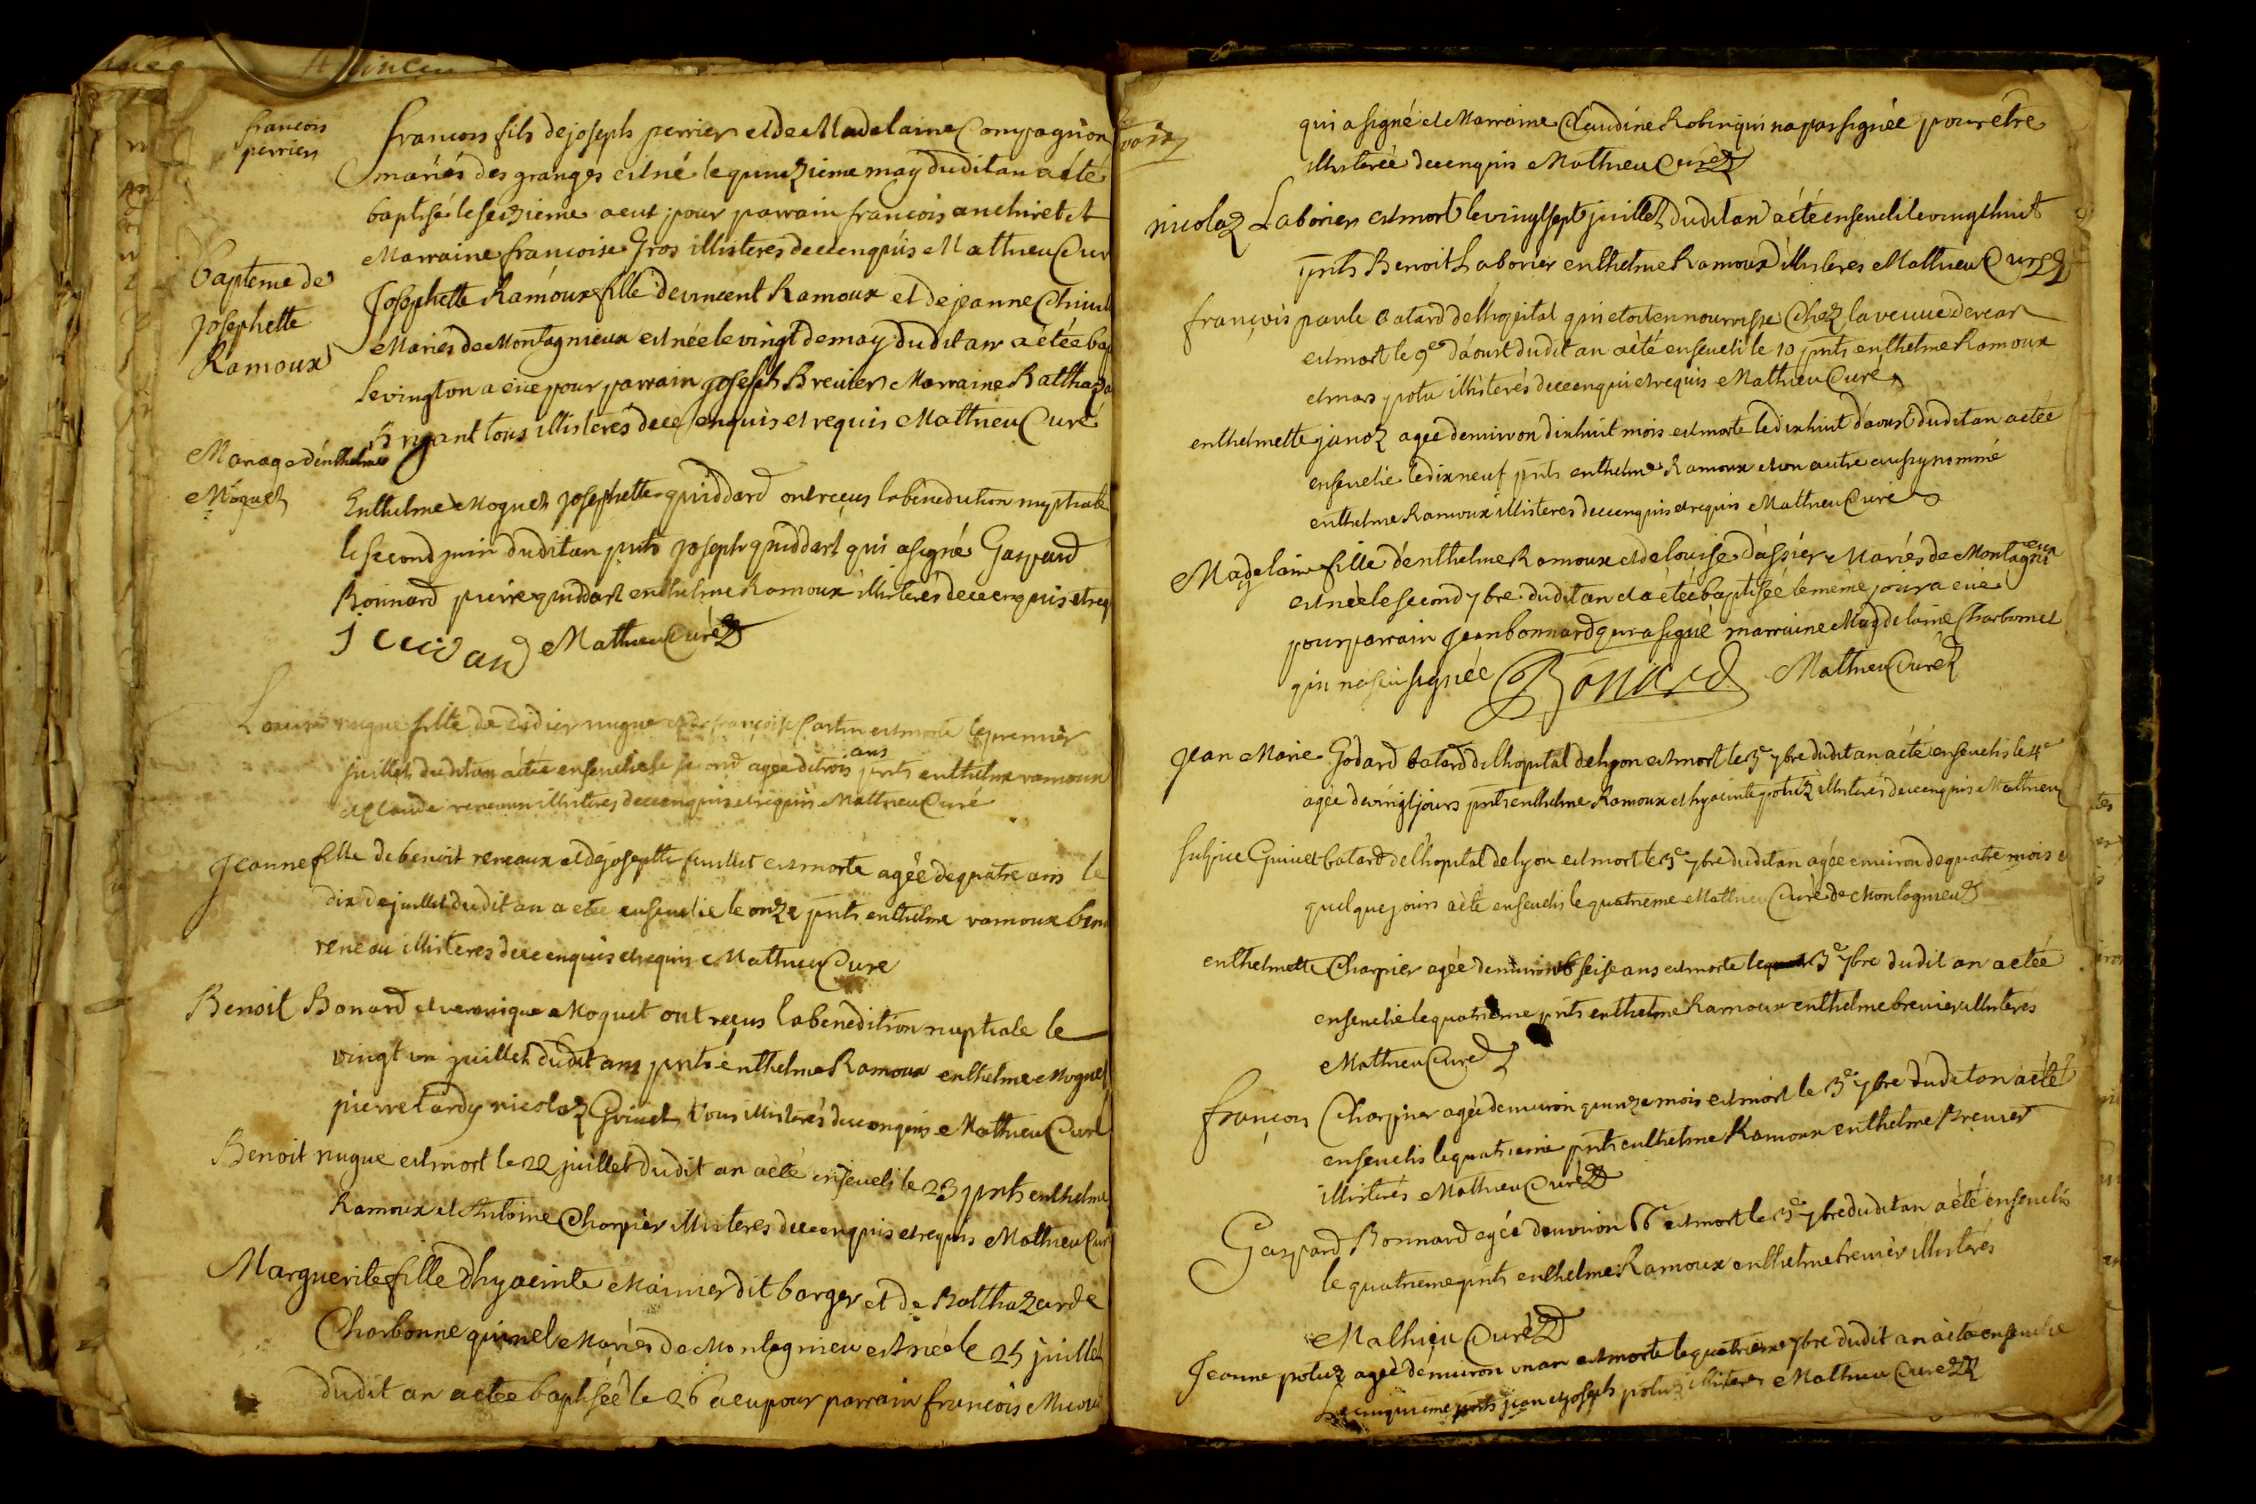 françois
perrier
françois fils de joseph perrier et de Madelaine Compagnion
mariés des granges est né le quinzieme may dudit an a été
baptisé le seizieme a eut pour parrain françois anchiret et
Marraine françoise Gros illisteres de ce enquis Mathieu Cur
Bapteme de
josephette
Ramoux
Josephette Ramoux fille de vincent Ramoux et de jeanne
Mariés de Montagnieux est née le vingt de may dudit an a étée bap
le vingt on a eüe pour parrain joseph Brevier Marraine Balthaza
tous illisterés de ce enquis et requis Mathieu Curé
Mariage d'enthelme
Moguet
Enthelme Moguet josephette quiddard ont reçus la benediction nuptiale
le second juin dudit an pnts joseph quiddart qui a signé Gaspard
Bonnard pierre quiddart enthelme Ramoux illisterés de ce enquis et req
Mathieu Curé
Louise nugue fille de didier nugue et de françoise est morte le premier
juillet dudit an a étée ensevelie le second agée de trois ans pnts enthelme ramoux
et Claude reneaux illisteres de ce enquis et requis Mathieu Curé
Jeanne fille de benoit reneaux et de josephte feuillet est morte agée de quatre ans le
dix de juillet dudit an a étée ensevelie le onze pnts enthelme ramoux beno
reneau illisteres de ce enquis et requis Mathieu Cure
Benoit Bonard et veronique Moguet ont reçus la benedition nuptiale le
vingt un juillet dudit an pnts enthelme Ramoux enthelme Moguet
pierre tardy nicolaz Grivet tous illisterés de ce enquis Mathieu Curé
Benoit nugue est mort le 22 juillet dudit an a été enseveli le 23 pnts enthelme
Ramoux et Antoine Charpier illisteres de ce enquis et requis Mathieu Cur
Marguerite fille d'hyacinte Marnier dit barger et de Balthazarde
Charbonne quinel Mariés de Montagnieu est née le 25 juillet
dudit an a étée baptisée le 26 a eu pour parrain françois
qui a signé et Marraine Claudine Robin qui na pas signée pour être
illisterée de ce enquis Mathieu Curé
nicolaz Laborier est mort le vingt sept juillet dudit an a été enseveli le vingt huit
pnts Benoit Laborier enthelme Ramoux illisteres Mathieu Curé
françois paule batard de l'hopital qui etoit en nourrisse Chez la veuve
est mort le 9e d'aoust dudit an a été enseveli le 10 pnts enthelme Ramoux
et marc potu illisterés de ce enquis et requis Mathieu Curé
enthelmette janoz agée denviron dix huit mois est morte le dix huit d'aoust dudit an a étée
ensevelie le dix neuf pnts enthelme Ramoux et un autre aussy nommé
enthelme Ramoux illisteres de ce enquis et requis Mathieu Curé
Magdelaine fille d'enthelme Ramoux et de louise dassier Mariés de Montagnieux
est née le second 7bre dudit an et a étée baptisée le même jour a eüe
pour parrain jean bonnard qui a signé marraine Magdelaine Charbonnet
qui na sçu signée Bonard Mathieu Curé
Jean Marie Godard batard de lhopital de lyon est mort le 3e 7bre dudit an a été ensevelis le 4e
agée de vingt jours pnts enthelme Ramoux et hyacinte potuz illisterés de ce enquis Mathieu
Sulpice Grivet batard de l'hopital de lyon est mort le 3e 7bre dudit an agée environ de quatre mois e
quelque jours a été ensevelis le quatrieme Mathieu Curé de Montagnieu
enthelmette Charpier agée denviron seise ans est morte le 3e 7bre dudit an a étée
ensevelie le quatrieme pnts enthelme Ramoux enthelme brevier illisteres
Mathieu Curé
françois Charpier agée denviron quinze mois est mort le 3e 7bre dudit an a été
ensevelis le quatrieme pnts enthelme Ramoux enthelme Brevier
illisterés Mathieu Curé
Gaspard Bonnard agée denvirion 66 est mort le 3e 7bre dudit an a été ensevelis
le quatrieme pnts enthelme Ramoux enthelme brevier illisterés
Mathieu Curé
Jeanne potuz agée denviron un an est morte le quatrieme 7bre dudit an a été ensevelie
Le cinquieme pnts jean et joseph potuz illisteres Mathieu Curé